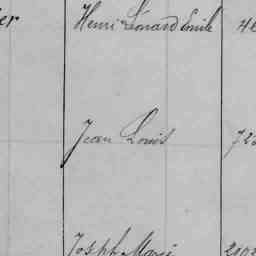 er Henri Léonard Emile
Jean Louis 72
Joseph Marie